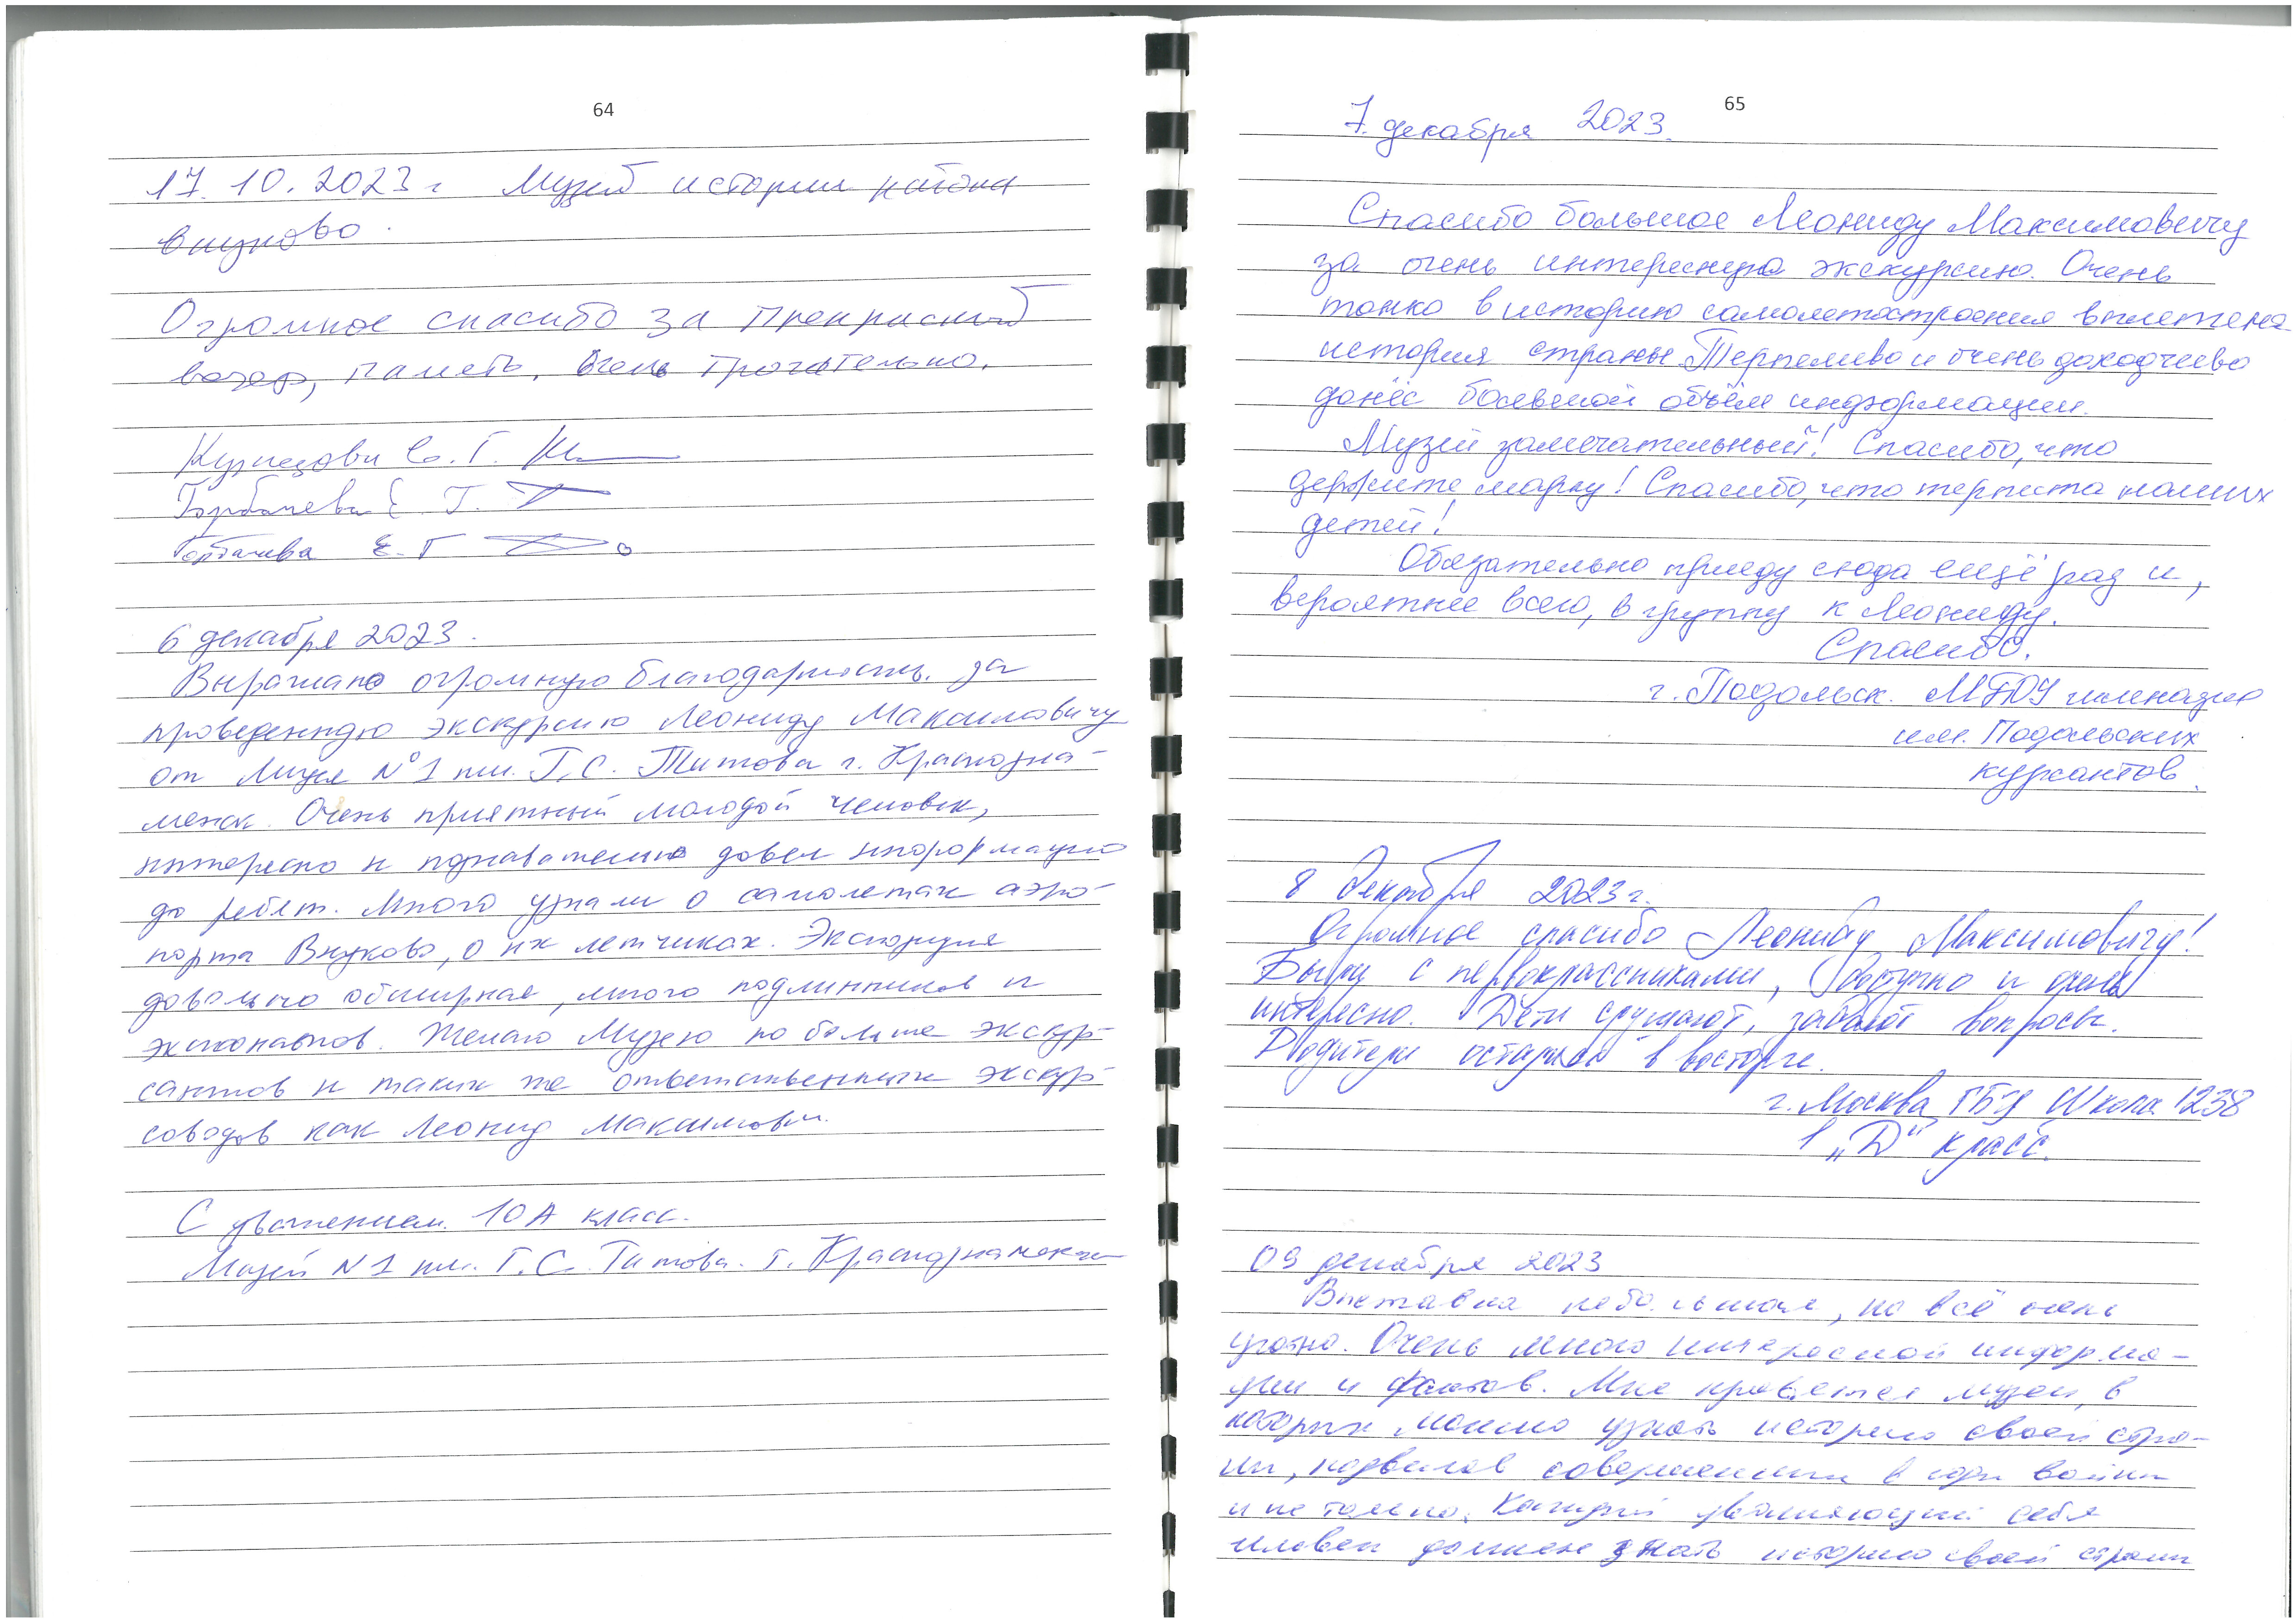 64
17.10.2023 г Музей истории района
Внуково.
Огромное спасибо за прекрасный
вечер, память. Очень трогательно.
Кузнецова С. Г.
Горбачева Е. Г.
Горбачева Е. Г
6 декабря 2023.
Выражаю огромную благодарность за
проведенную экскурсию Леониду Максимовичу
от Лицея №1 им. Г.С. Титова г. Краснозна-
менск. Очень приятный молодой человек,
интересно и познавательно довел информацию
до ребят. Много узнали о самолетах аэро-
порта Внуково, о их летчиках. Экспозиция
довольно обширная, много подлинников и
экспонатов. Желаю Музею по больше экскур-
сантов и таких же ответственных экскур-
соводов как Леонид Максимович.
С уважением 10 А класс.
Лицей N 1 им. Г.С. Титова. г. Краснознаменск
65
7 декабря 2023.
Спасибо большое Леониду Максимовичу
за очень интересную экскурсию. Очень
тонко в историю самолетостроения вплетена
история страны. Терпеливо и очень доходчиво
донёс большой объём информации.
Музей замечательный! Спасибо, что
держите марку! Спасибо, что терпите наших
детей!
Обязательно приеду сюда ещё раз и,
вероятнее всего, в группу к Леониду.
Спасибо.
г. Подольск. МБОУ гимназия
им. Подольских
курсантов.
8 декабря 2023 г.
Огромное спасибо Леониду Максимовичу!
Были с первоклассниками, доступно и очень
интересно. Дети слушают, задают вопросы.
Родители остались в восторге.
г. Москва ГБОУ Школа 1238
1 „Д" класс.
09 декабря 2023
Выставка небольшая, но всё очень
уютно. Очень много интересной информа-
ции и фактов. Мне нравятся музеи, в
которых можно узнать историю своей стра-
ны, подвигов совершенных в годы войны
и не только. Каждый уважающий себя
человек должен знать историю своей страны